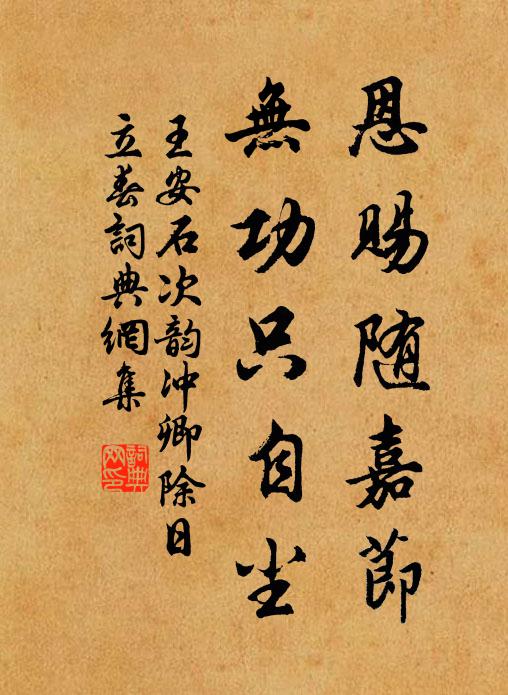 恩赐随嘉節
無功只自尘
王安石次韵冲卿除日
立春詞典網集
詞典网印